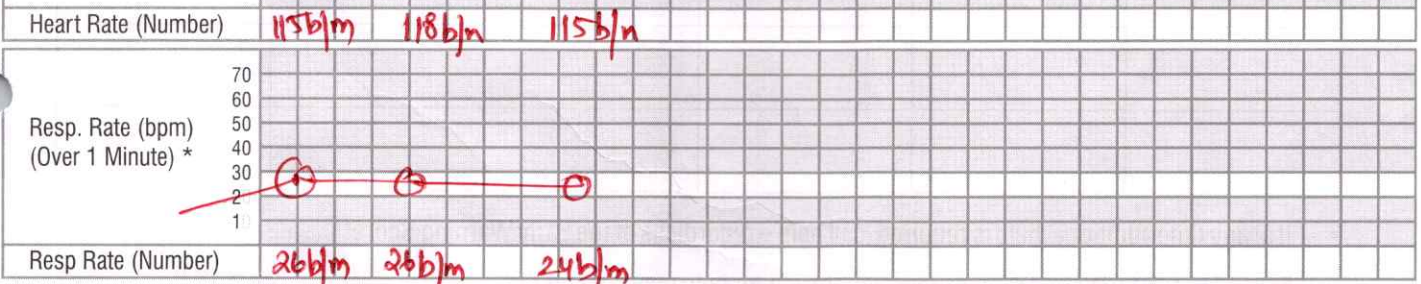 Heart Rate (Number) 115b/m 118b/m 115b/m
70
60
Resp. Rate (bpm) 50
(Over 1 Minute) * 40
30
2
1
Resp Rate (Number) 26b/m 26b/m 24b/m